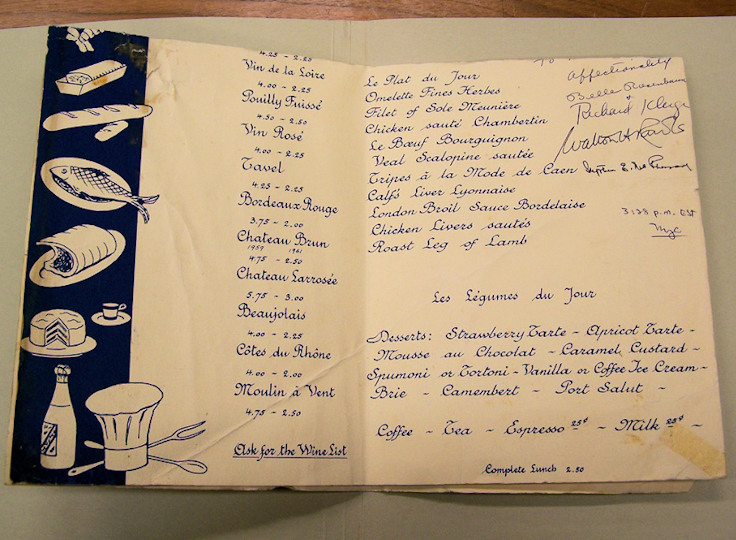 4.25 - 2.25
Vin de la Loire
4.00 - 2.25
Pouilly Fuissé
4.50 - 2.50
Vin Rosé
4.00 - 2.25
Tavel
4.25 - 2.25
Bordeaux Rouge
3.75 - 2.00
Chateau Brun
1959 1961
4.75 - 2.50
Chateau Larrosée
5.75 - 3.00
Beaujolais
4.00 - 2.25
Côtes du Rhône
4.00 - 2.00
Moulin à Vent
4.75 - 2.50
Ask for the Wine List
Le Plat du Jour
Omelette Fines Herbes
Filet of Sole Meunière
Chicken sauté Chambertin
Le Bœuf Bourguignon
Veal Scalopine sautée
Tripes à la Mode de Caen
Calf's Liver Lyonnaise
London Broil Sauce Bordelaise
Chicken Livers sautés
Roast Leg of Lamb
To
Affectionately
Belle Rosenbaum
Richard
Walton H
E.
3:28 p.m. EST
NYC
Les Légumes du Jour
Desserts: Strawberry Tarte - Apricot Tarte -
Mousse au Chocolat - Caramel Custard -
Spumoni or Tortoni - Vanilla or Coffee Ice Cream -
Brie - Camembert - Port Salut -
Coffee - Tea - Espresso 25¢ - Milk 25¢ -
Complete Lunch 2.50